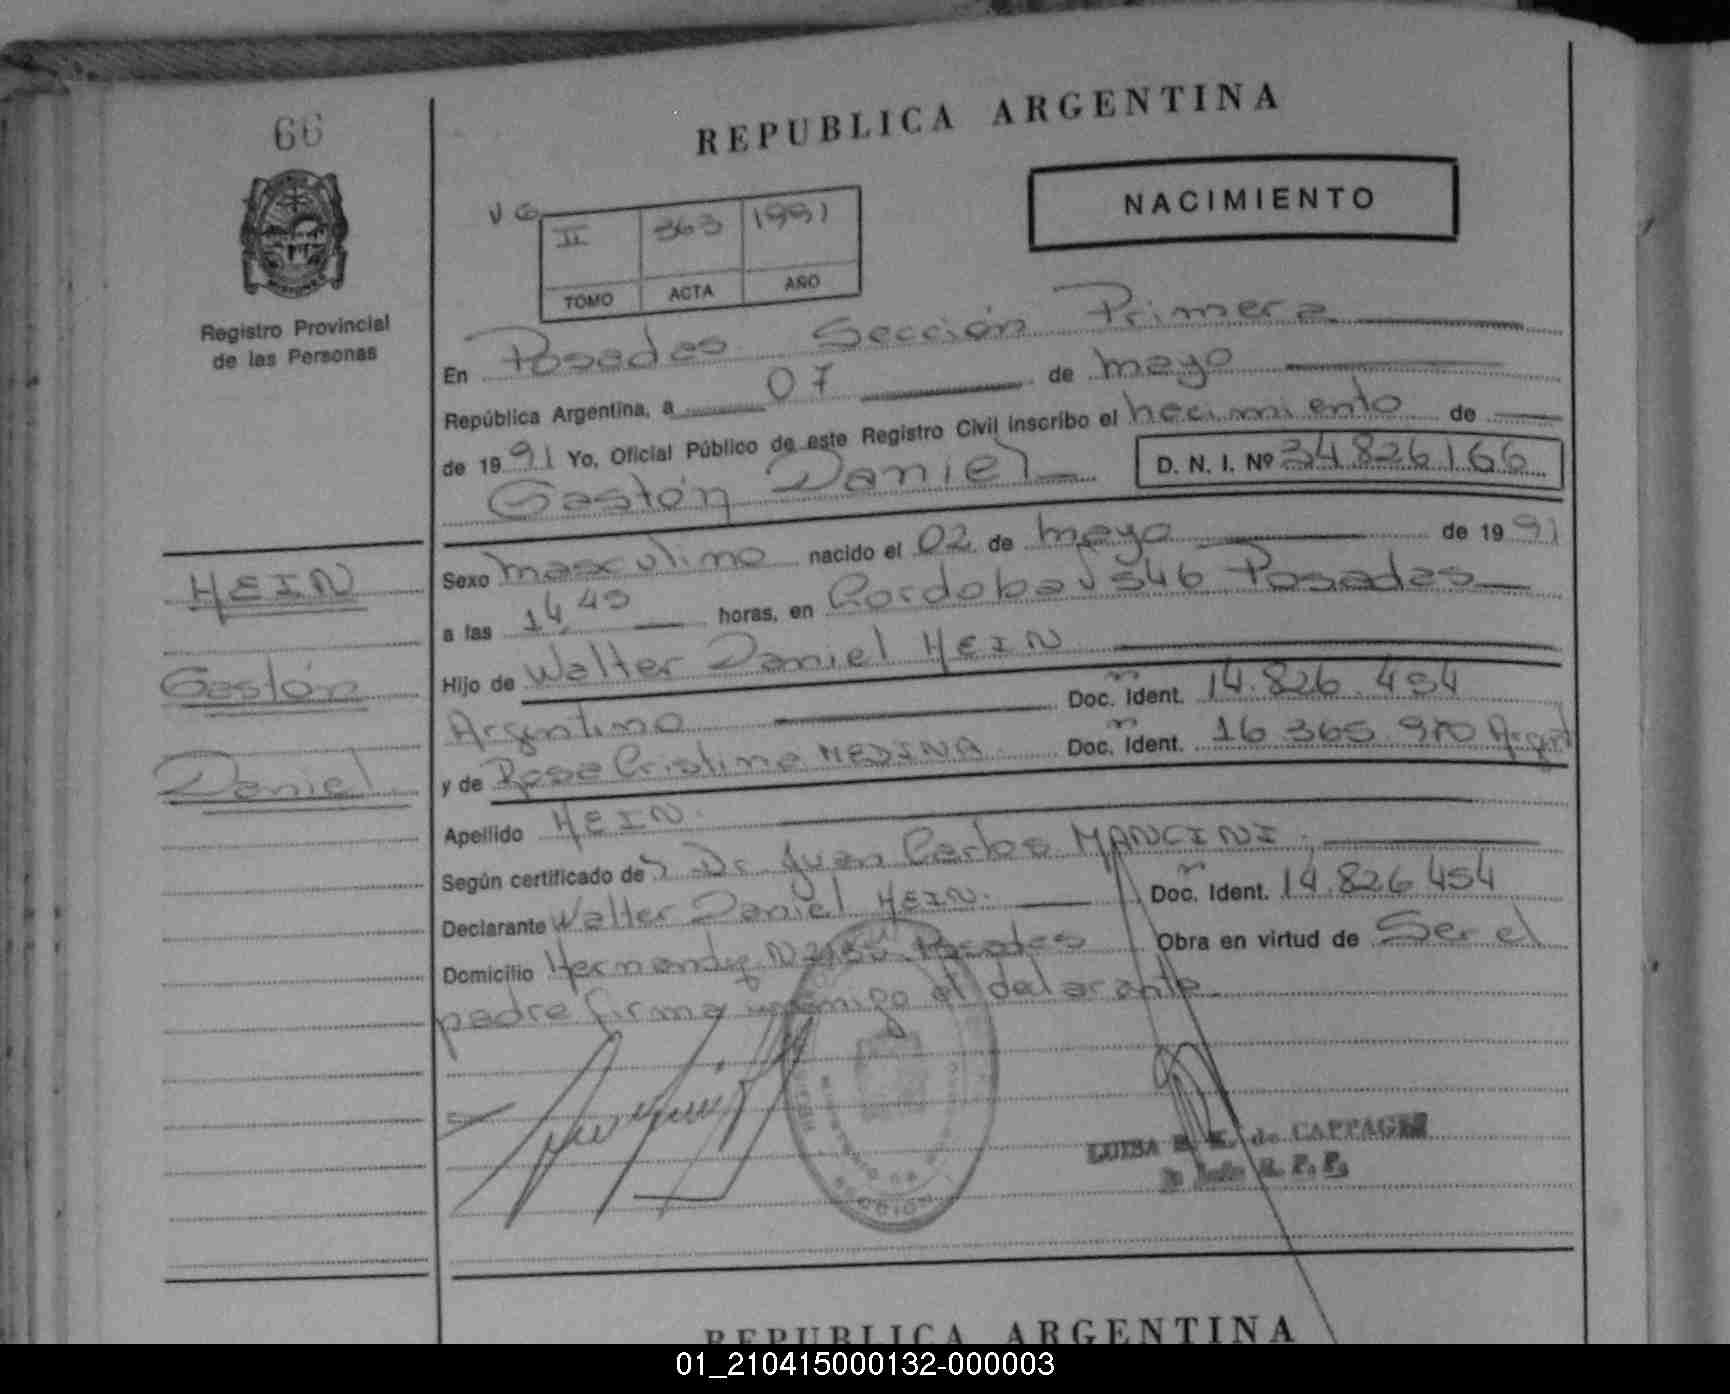 66
REPUBLICA ARGENTINA
NACIMIENTO
V G
II 363 1991
TOMO ACTA AÑO
Registro Provincial
de las Personas
En Posadas Sección Primera
República Argentina, a 07 de mayo
de 1991 Yo, Oficial Público de este Registro Civil inscribo el nacimiento de
Gastón Daniel D. N. I. Nº 34826166
Sexo masculino nacido el 02 de mayo de 1991
a las 14,45 horas, en Cordoba 546 Posadas
Hijo de Walter Daniel HEIN
Argentino Doc. Ident. 14.826.454
y de Rosa Cristina MEDINA Doc. Ident. 16 365 970 Argent
Apellido HEIN
Según certificado de Dr Juan Carlos MANCINI
Declarante Walter Daniel HEIN. Doc. Ident. 14.826 454
Domicilio Posadas Obra en virtud de Ser el
padre firma conmigo el delarante
HEIN
Gastón
Daniel
LUISA de
REPUBLICA ARGENTINA
01_210415000132-000003